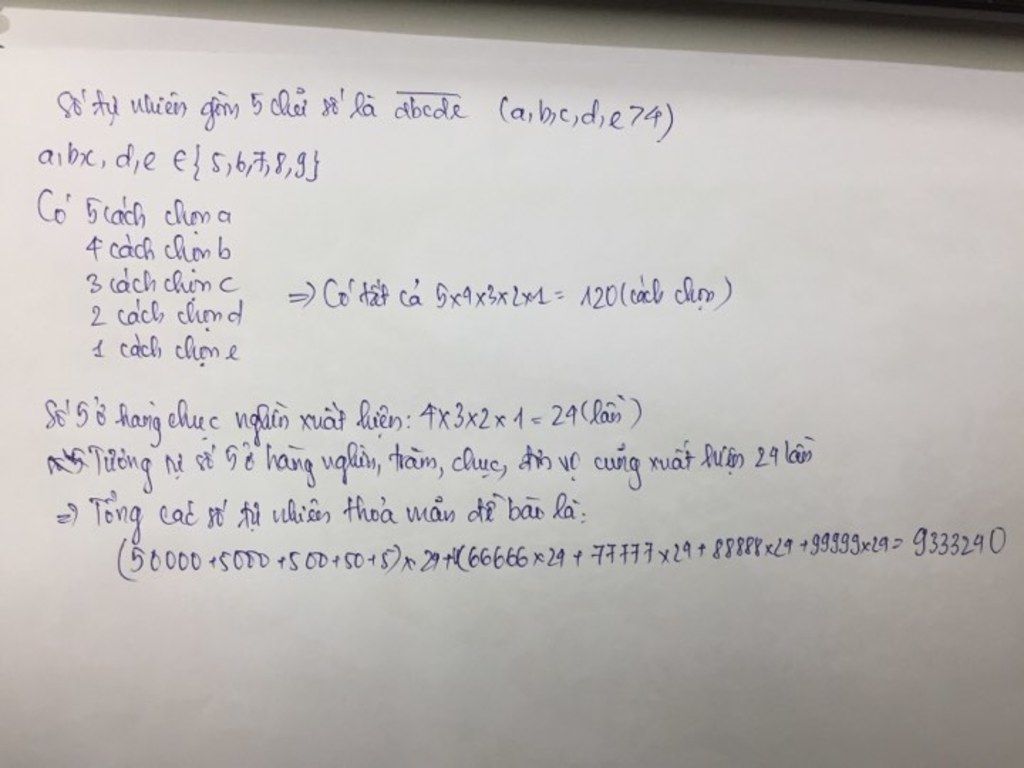 Số tự nhiên gồm 5 chữ số là abcde (a,b,c,d,e>4)
a,b,c, d,e ∈ {5,6,7,8,9}
Có 5 cách chọn a
4 cách chọn b
3 cách chọn c
2 cách chọn d
1 cách chọn e
=> Có tất cả 5x4x3x2x1 = 120 (cách chọn)
Số 5 ở hàng chục nghìn xuất hiện: 4x3x2x1 = 24 (lần)
Tương tự số 5 ở hàng nghìn, trăm, chục, đơn vị cũng xuất hiện 24 lần
=> Tổng các số tự nhiên thoả mãn đề bào là:
(50000+5000+500+50+5)x24+(66666x24+77777x24+88888x24+99999x24=9333240